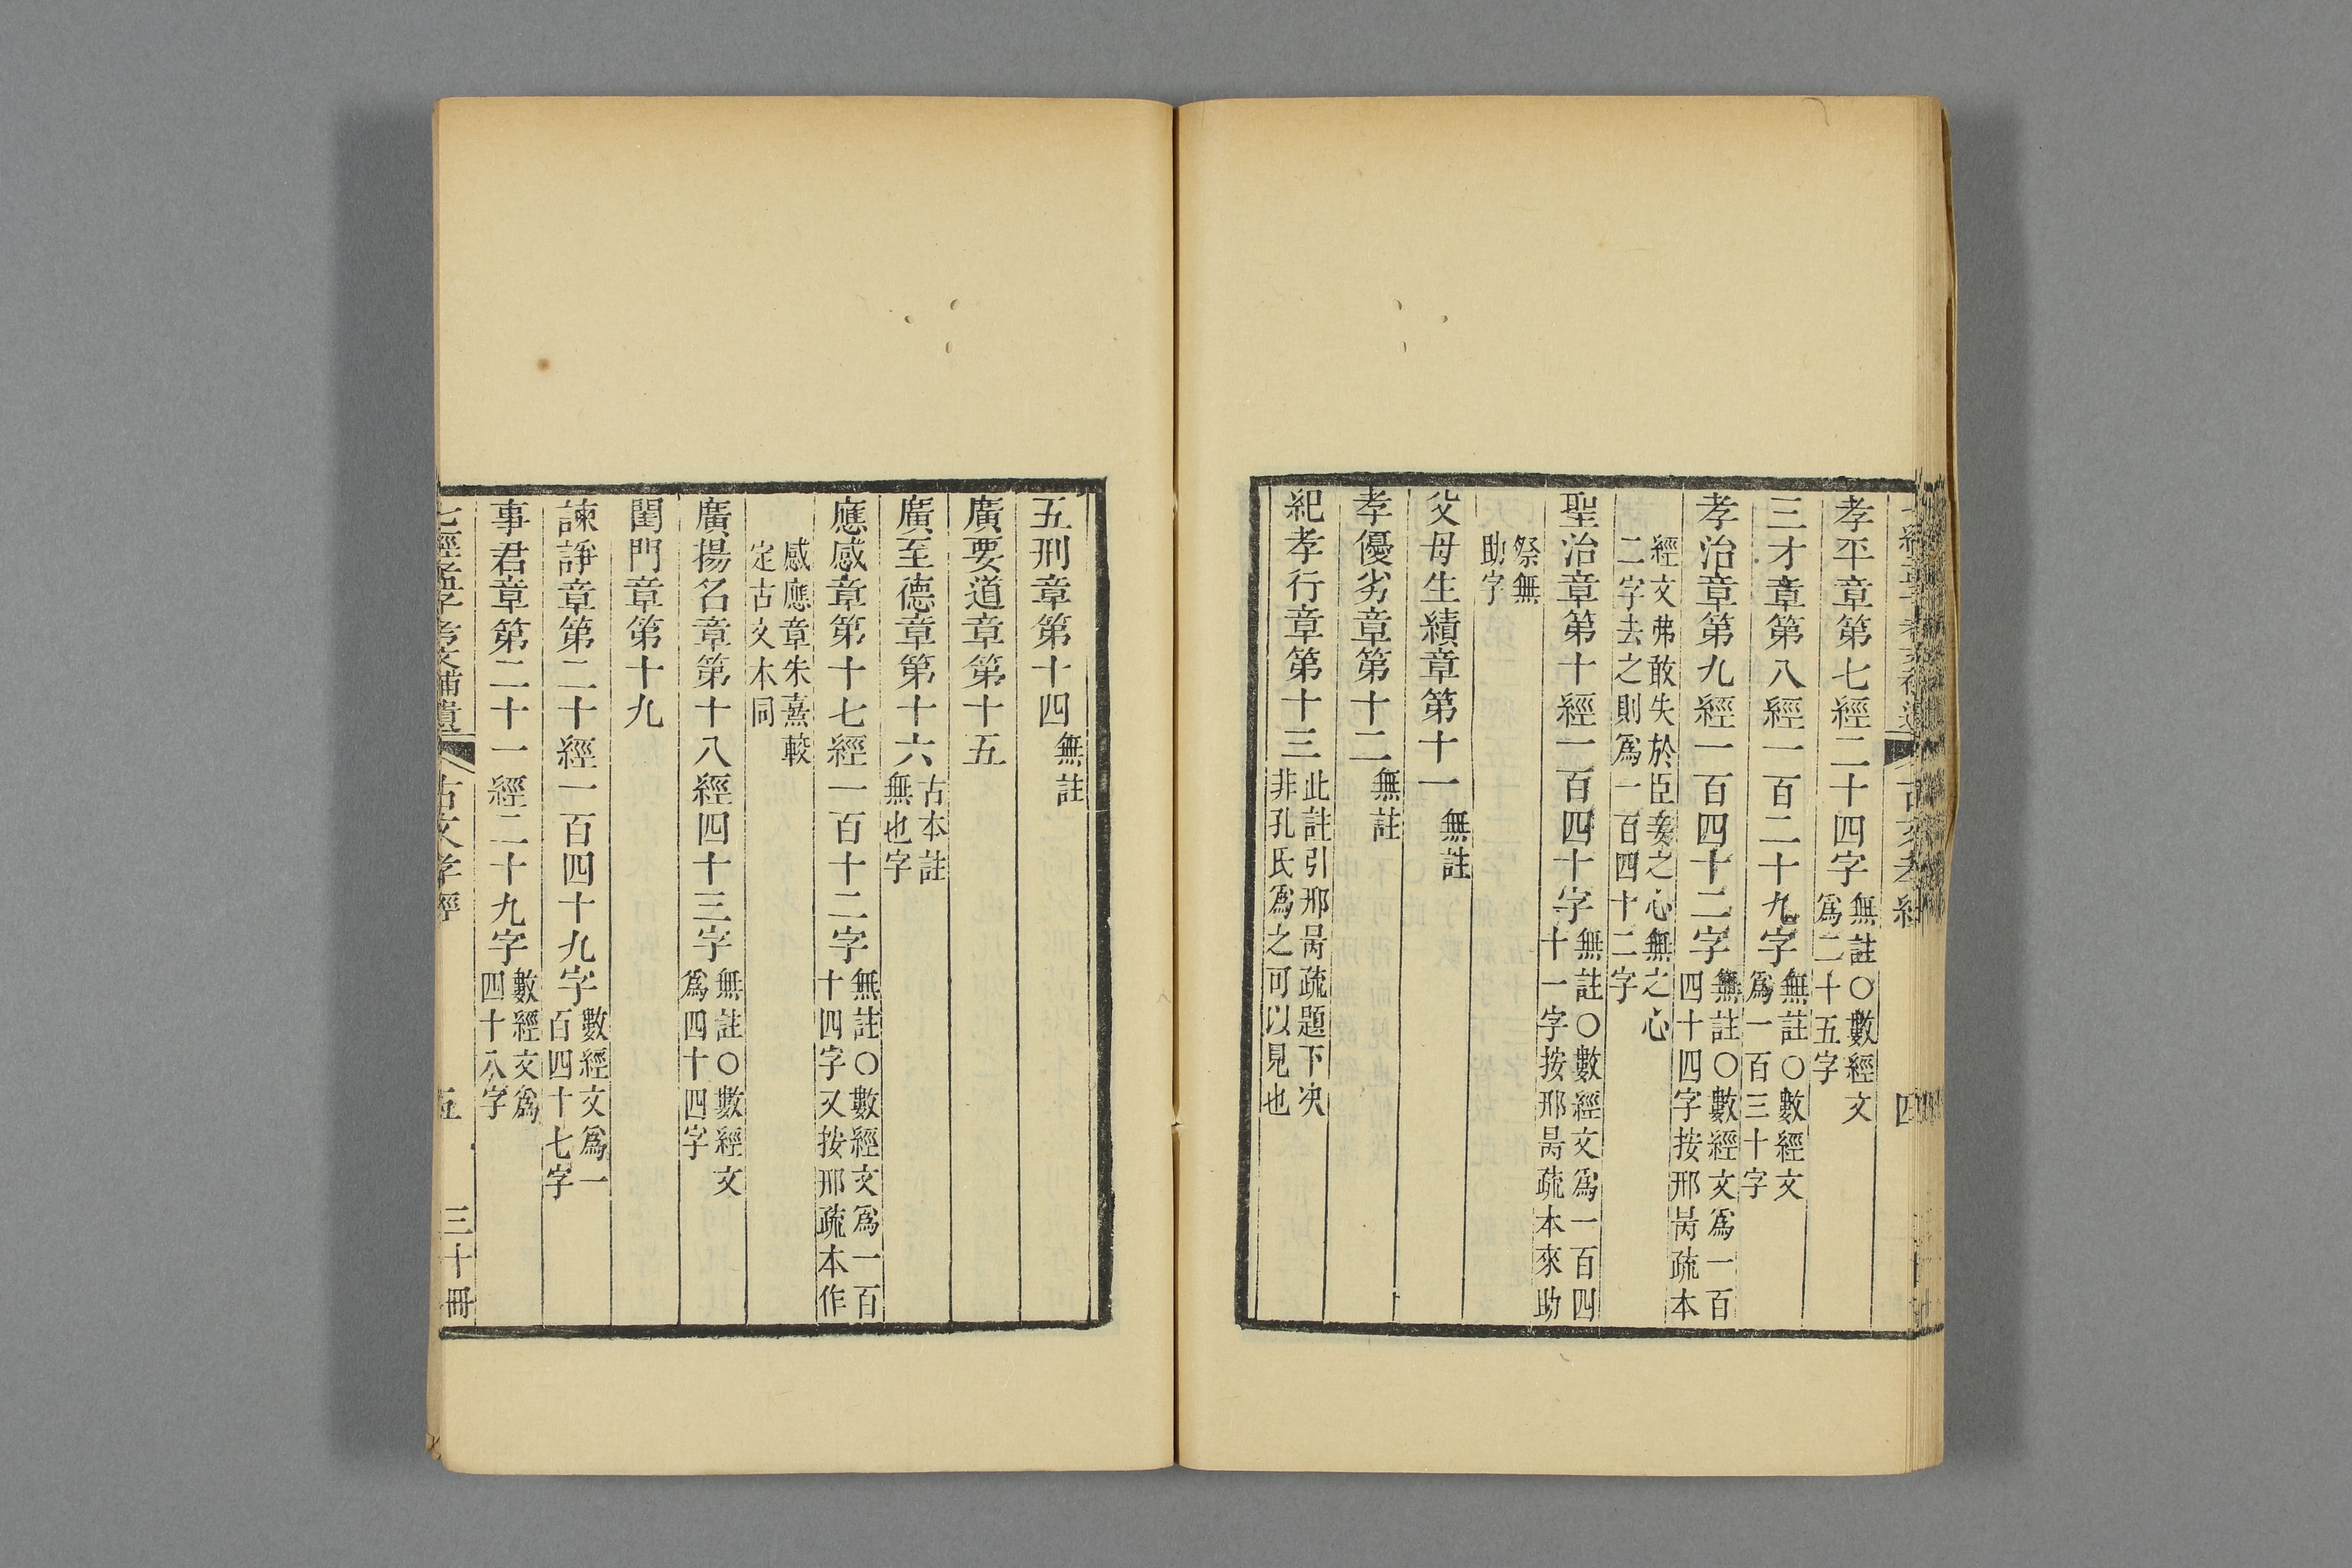 孝平章第七經二十四字無註〇數經文爲二十五字
三才章第八經一百二十九字無註〇數經文爲一百三十字
孝治章第九經一百四十二字無註〇數經文爲一百四十四字按邢昺疏本
經文弗敢失於臣妾之心無之心二字去之則爲一百四十二字
聖治章第十經一百四十字無註〇數經文爲一百四十一字按邢昺疏本來助
祭無助字
父母生績章第十一無註
孝優劣章第十二無註
紀孝行章第十三此註引邢昺疏題下决非孔氏爲之可以見也
五刑章第十四無註
廣要道章第十五
廣至德章第十六古本註無也字
應感章第十七經一百十二字無註〇數經文爲一百十四字又按邢疏本作
感應章朱熹較定古文本同
廣揚名章第十八經四十三字無註〇數經文爲四十四字
閨門章第十九
諫諍章第二十經一百四十九字數經文爲一百四十七字
事君章第二十一經二十九字數經文爲四十八字
七經孟子考文補遺 古文孝經 五 三十冊